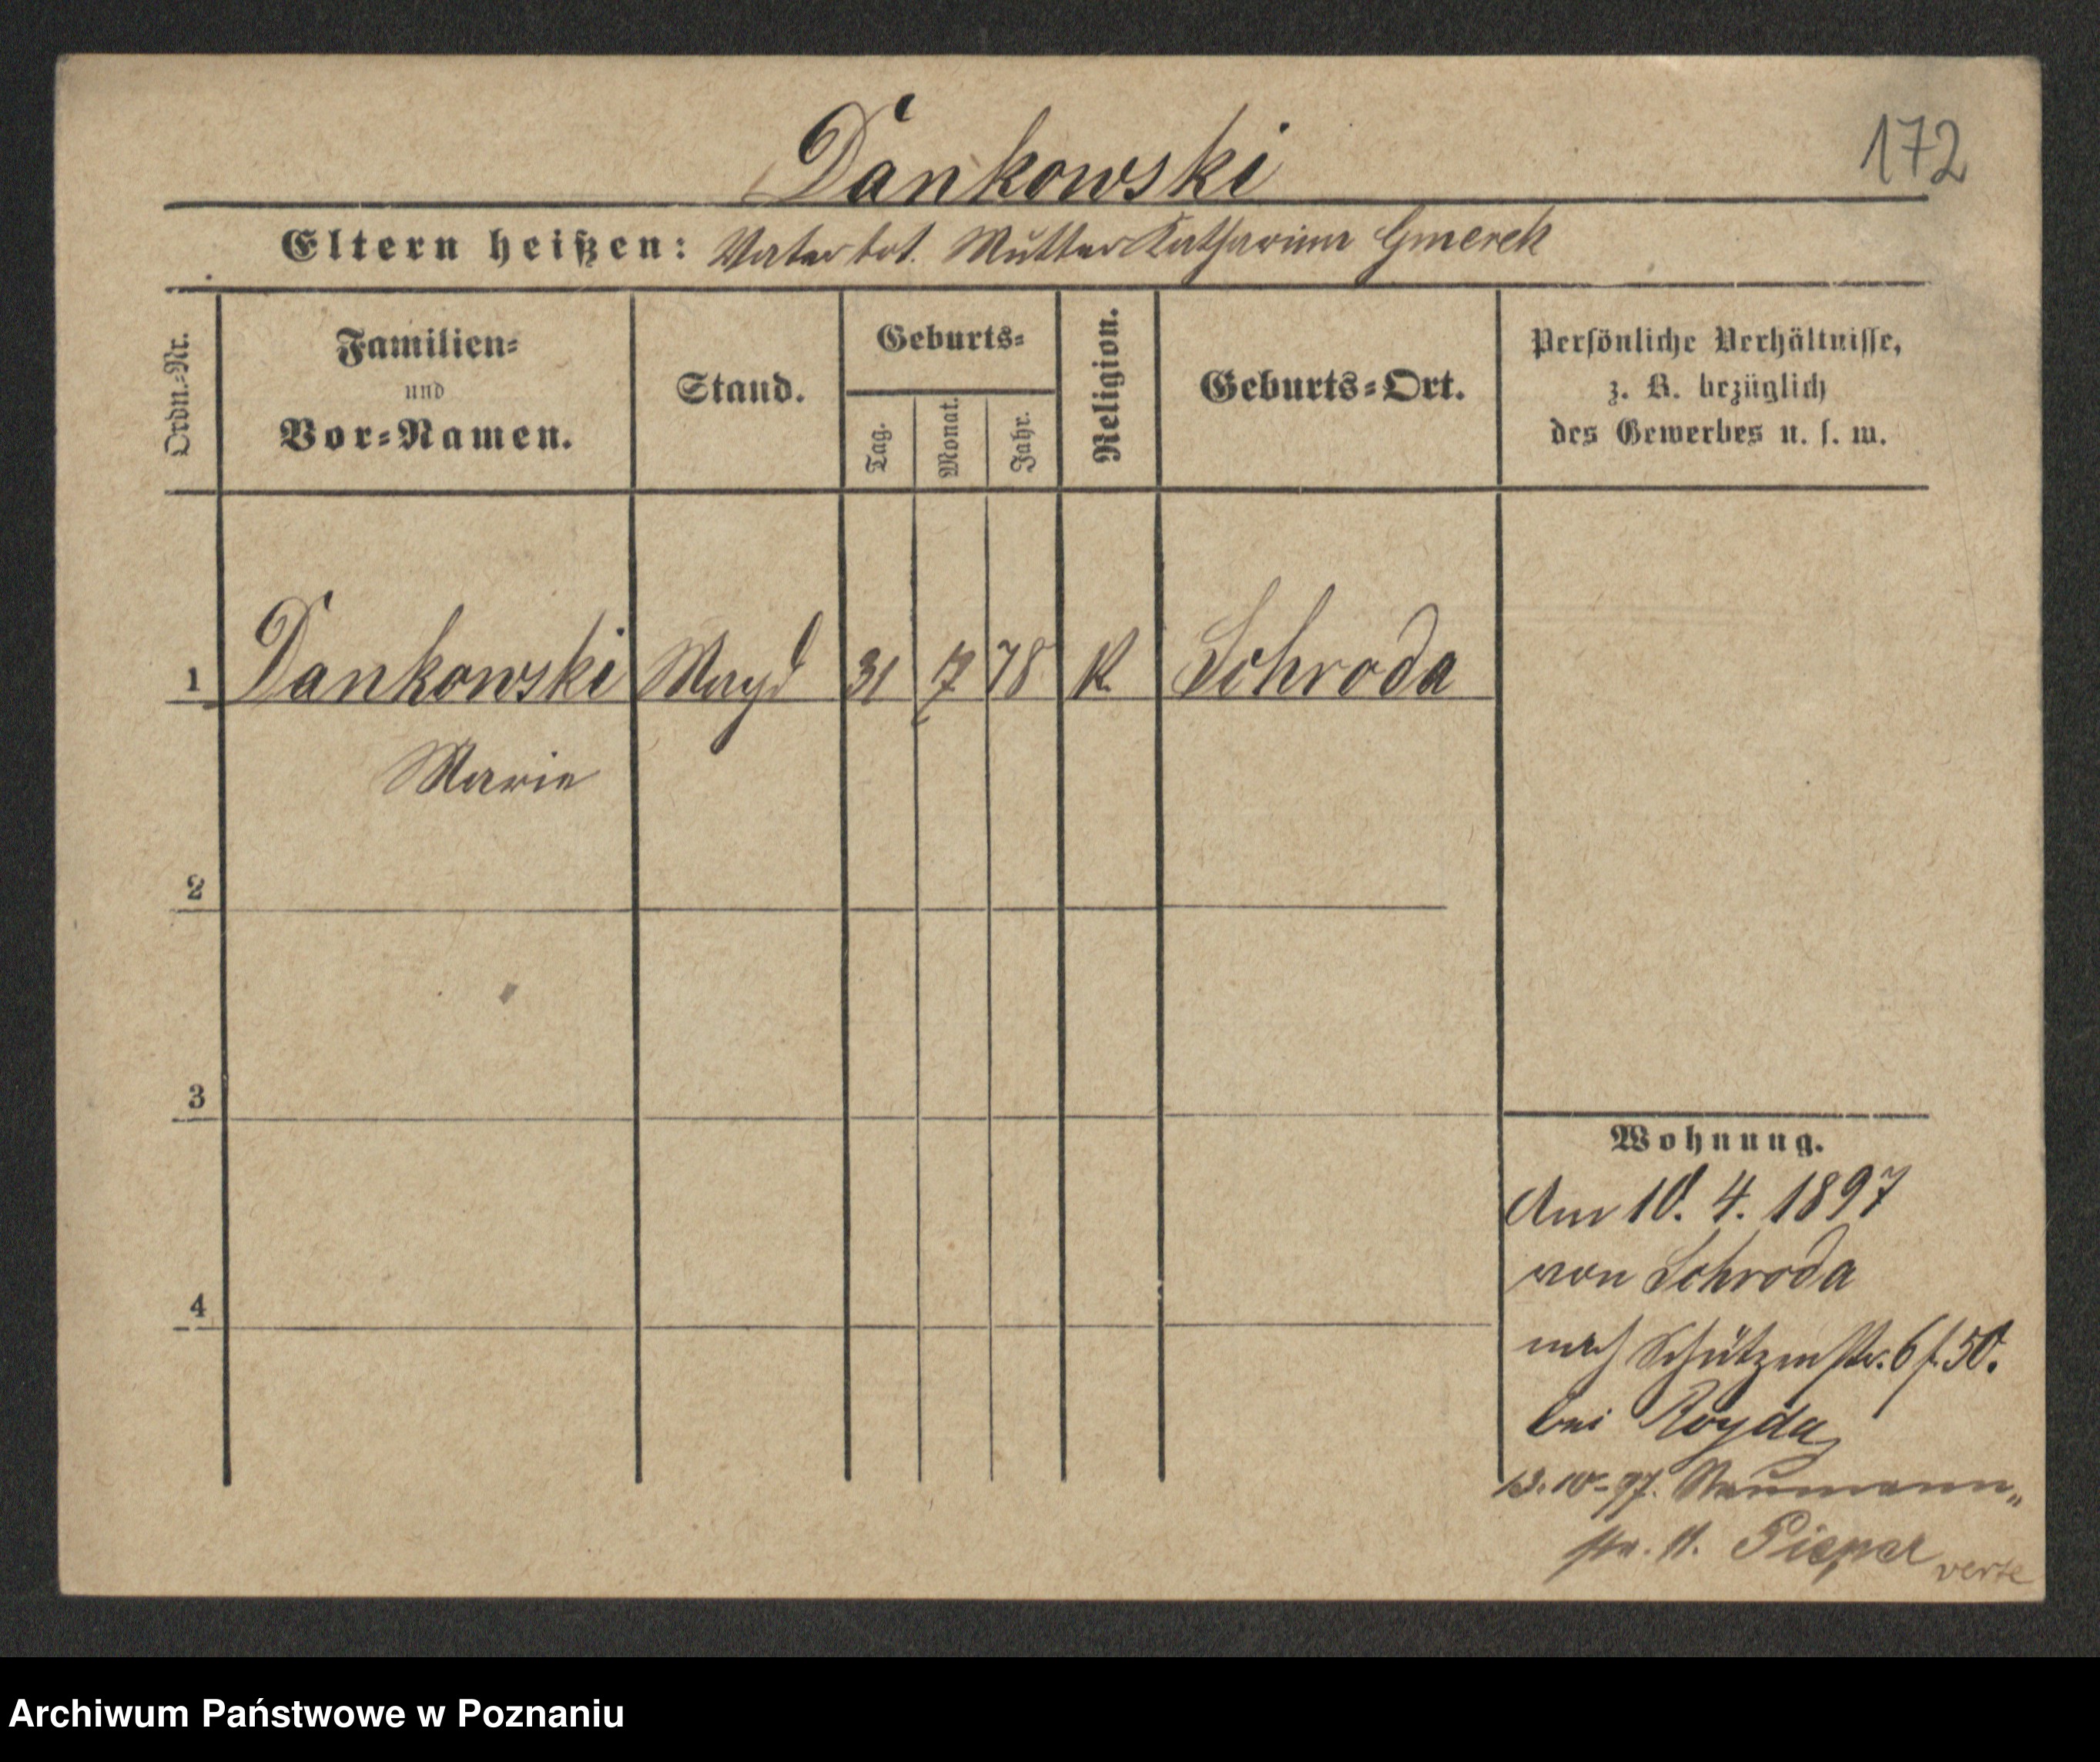 172
Dankowski
Eltern heißen: Vater tot. Mutter Katharina Gmerek
Ordn.-Nr.
Familien-
und
Vor-Namen.
Stand.
Geburts-
Tag.
Monat.
Jahr.
Religion.
Geburts-Ort.
Persönliche Verhältnisse,
z. B. bezüglich
des Gewerbes u. s. w.
1 Dankowski Magd 31 7 78 K. Schroda
Marie
2
3
4
Wohnung.
Am 10. 4. 1897
von Schroda
nach Schützenstr. 6 f. 50.
bei Royda
13. 10. 97. Naumann„
str. 11.
verte
Archiwum Państwowe w Poznaniu